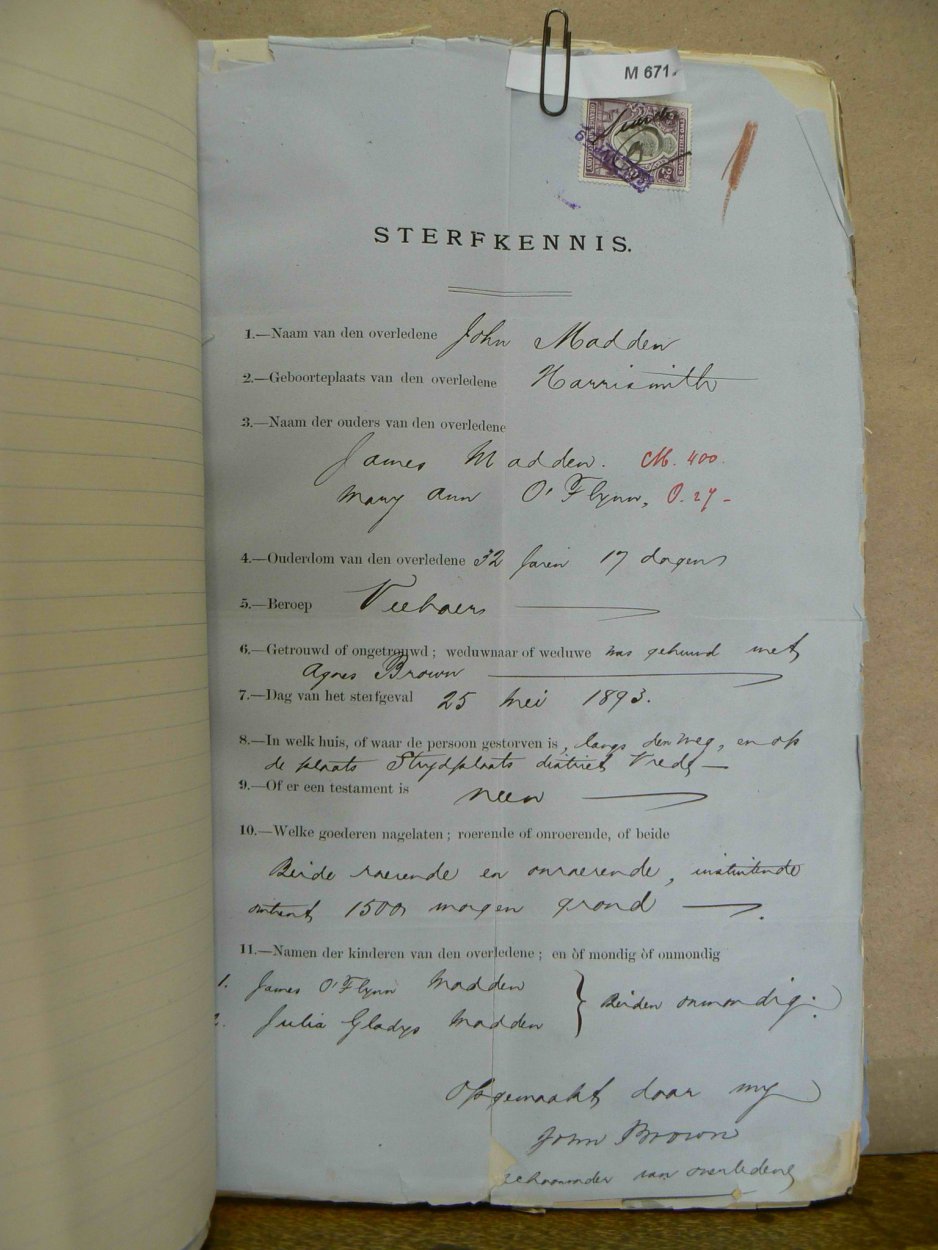 M 671
STERFKENNIS.
1.—Naam van den overledene John Madden
2.—Geboorteplaats van den overledene Harrismith
3.—Naam der ouders van den overledene
James Madden. M. 400.
Mary Ann O'Flynn, O. 27-
4.—Ouderdom van den overledene 32 Jaren 17 dagen
5.—Beroep Veeboer
6.—Getrouwd of ongetrouwd; weduwnaar of weduwe was gehuwd met
Agnes Brown
7.—Dag van het sterfgeval 25 Mei 1893.
8.—In welk huis, of waar de persoon gestorven is, langs den weg, en op
de plaats Strydplaats district Vrede
9.—Of er een testament is neen
10.—Welke goederen nagelaten; roerende of onroerende, of beide
Beide roerende en onroerende,
omtrent 1500 morgen grond
11.—Namen der kinderen van den overledene; en òf mondig òf onmondig
1. James O'Flynn Madden
2. Julia Gladys Madden } Beiden onmondig.
Opgemaakt door my
John Brown
van overledene